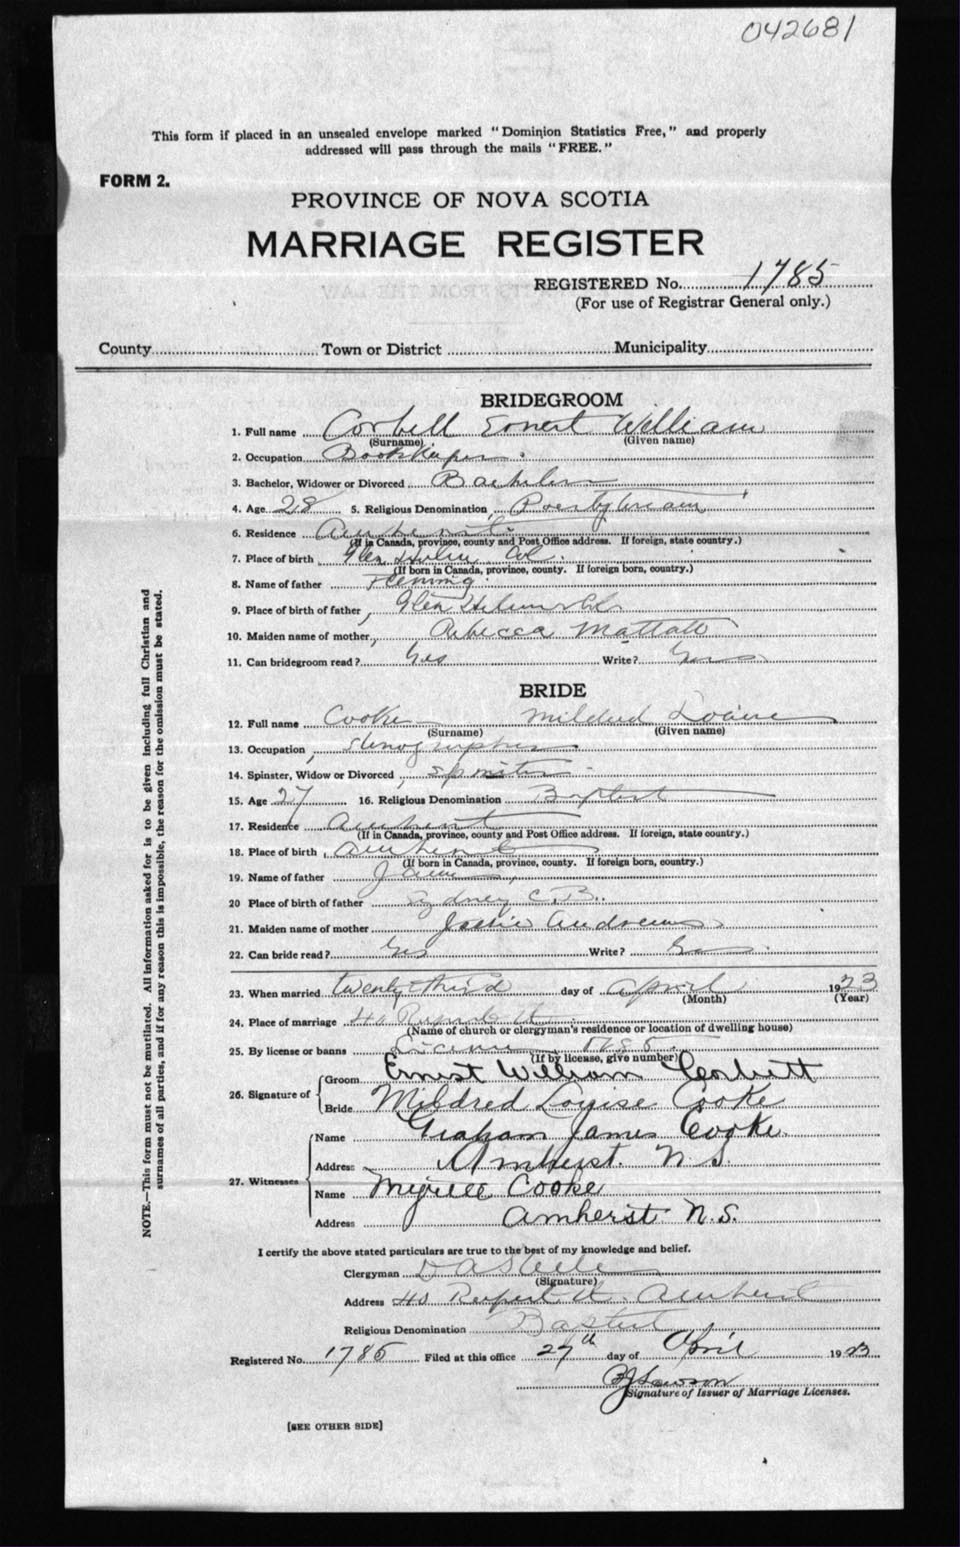 042681
This form if placed in an unsealed envelope marked "Dominion Statistics Free," and properly
addressed will pass through the mails "FREE."
FORM 2.
PROVINCE OF NOVA SCOTIA
MARRIAGE REGISTER
REGISTERED No. 1785
(For use of Registrar General only.)
County Town or District Municipality
BRIDEGROOM
1. Full name Corbett Ernest William
(Surname) (Given name)
2. Occupation Bookkeeper
3. Bachelor, Widower or Divorced Bachelor
4. Age 28 5. Religious Denomination Presbyterian
6. Residence Amherst
(If in Canada, province, county and Post Office address. If foreign, state country.)
7. Place of birth Glen Holm Col.
(If born in Canada, province, county. If foreign born, country.)
8. Name of father Fleming
9. Place of birth of father Glen Holm Col
10. Maiden name of mother Rebecca Mattatt
11. Can bridegroom read? Yes Write? Yes
BRIDE
12. Full name Cooke Mildred Louise
(Surname) (Given name)
13. Occupation Stenographer
14. Spinster, Widow or Divorced spinster
15. Age 27 16. Religious Denomination Baptist
17. Residence Amherst
(If in Canada, province, county and Post Office address. If foreign, state country.)
18. Place of birth Amherst
(If born in Canada, province, county. If foreign born, country.)
19. Name of father James
20 Place of birth of father Sydney C.B.
21. Maiden name of mother Jessie Andrews
22. Can bride read? Yes Write? Yes
23. When married twenty third day of April 1923
(Month) (Year)
24. Place of marriage 40 Rupert St
(Name of church or clergyman's residence or location of dwelling house)
25. By license or banns License 1785
(If by license, give number)
26. Signature of Groom Ernest William Corbett
Bride Mildred Louise Cooke
27. Witnesses Name Graham James Cooke
Address Amherst. N.S.
Name Cooke
Address Amherst N.S.
I certify the above stated particulars are true to the best of my knowledge and belief.
Clergyman D A Steele
(Signature)
Address 40 Rupert St. Amherst
Religious Denomination Baptist
Registered No. 1785 Filed at this office 27th day of April 1923
Lawson
Signature of Issuer of Marriage Licenses.
[SEE OTHER SIDE]
NOTE.—This form must not be mutilated. All information asked for is to be given including full Christian and
surnames of all parties, and if for any reason this is impossible, the reason for the omission must be stated.